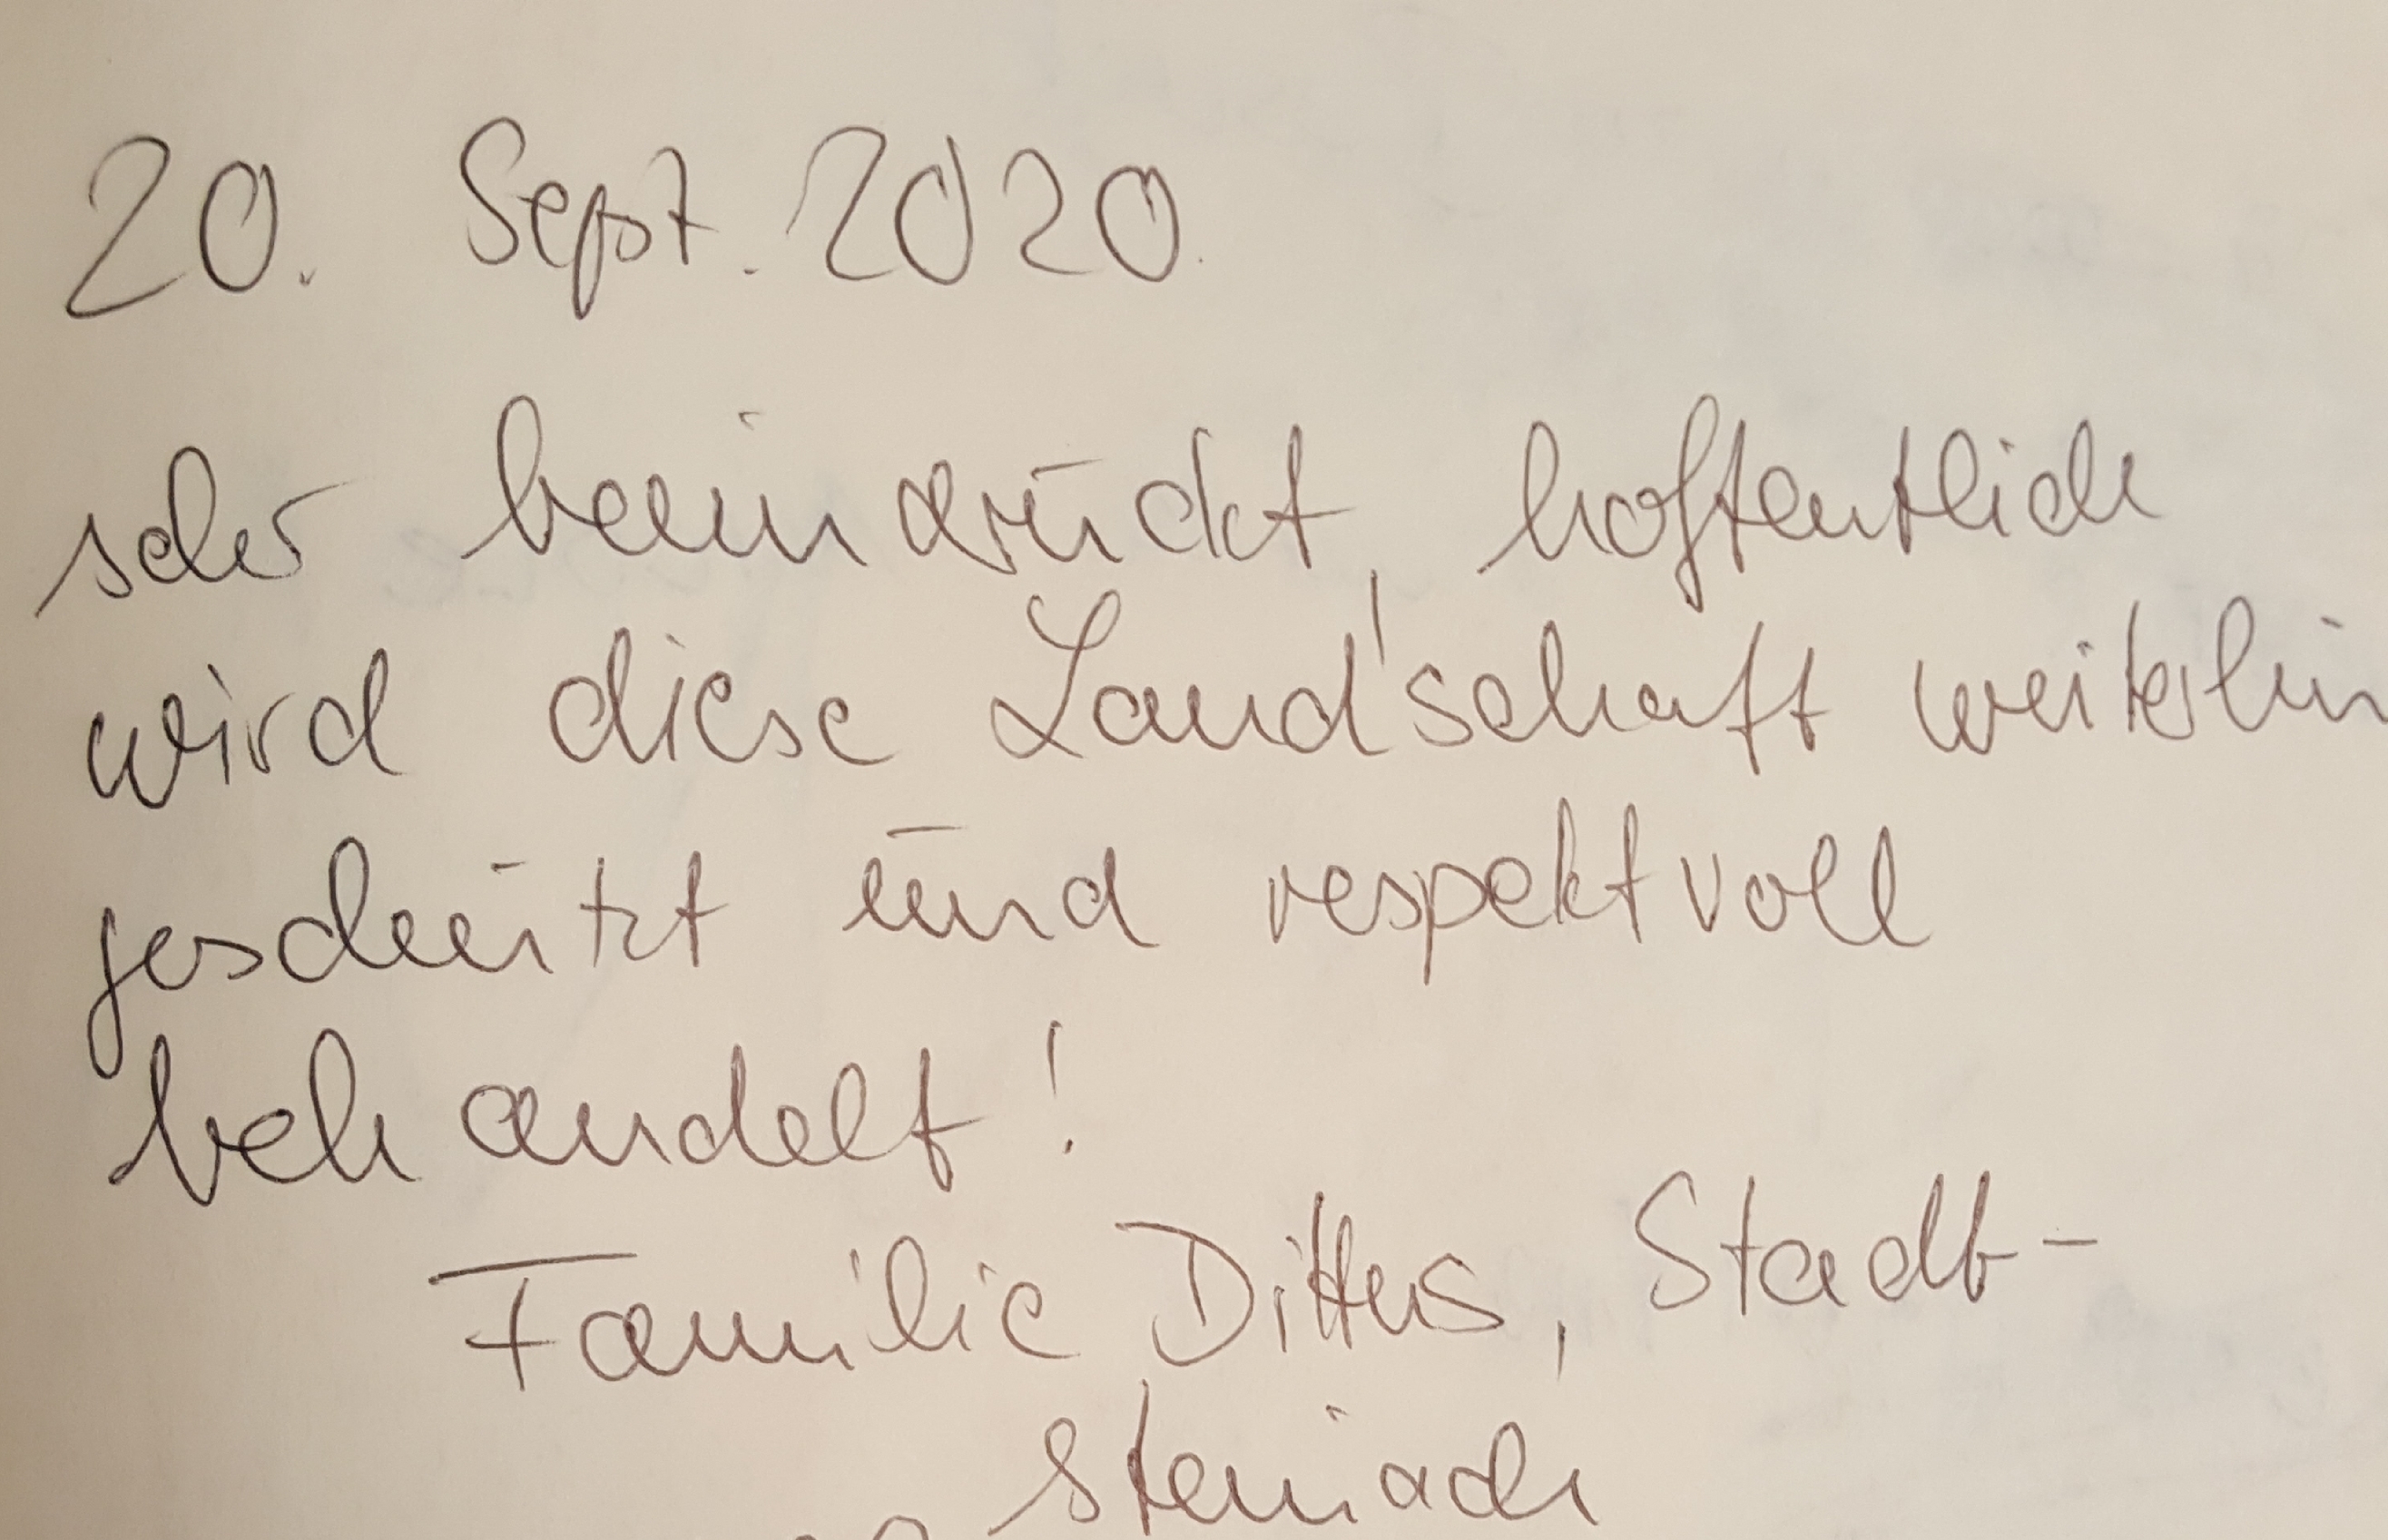 20. Sept. 2020.
sehr beeindrückt, hoffentlich
wird diese Landschaft weiterhin
geschützt und respektvoll
behandelt!
Familie Dittus, Stadt-
steinach